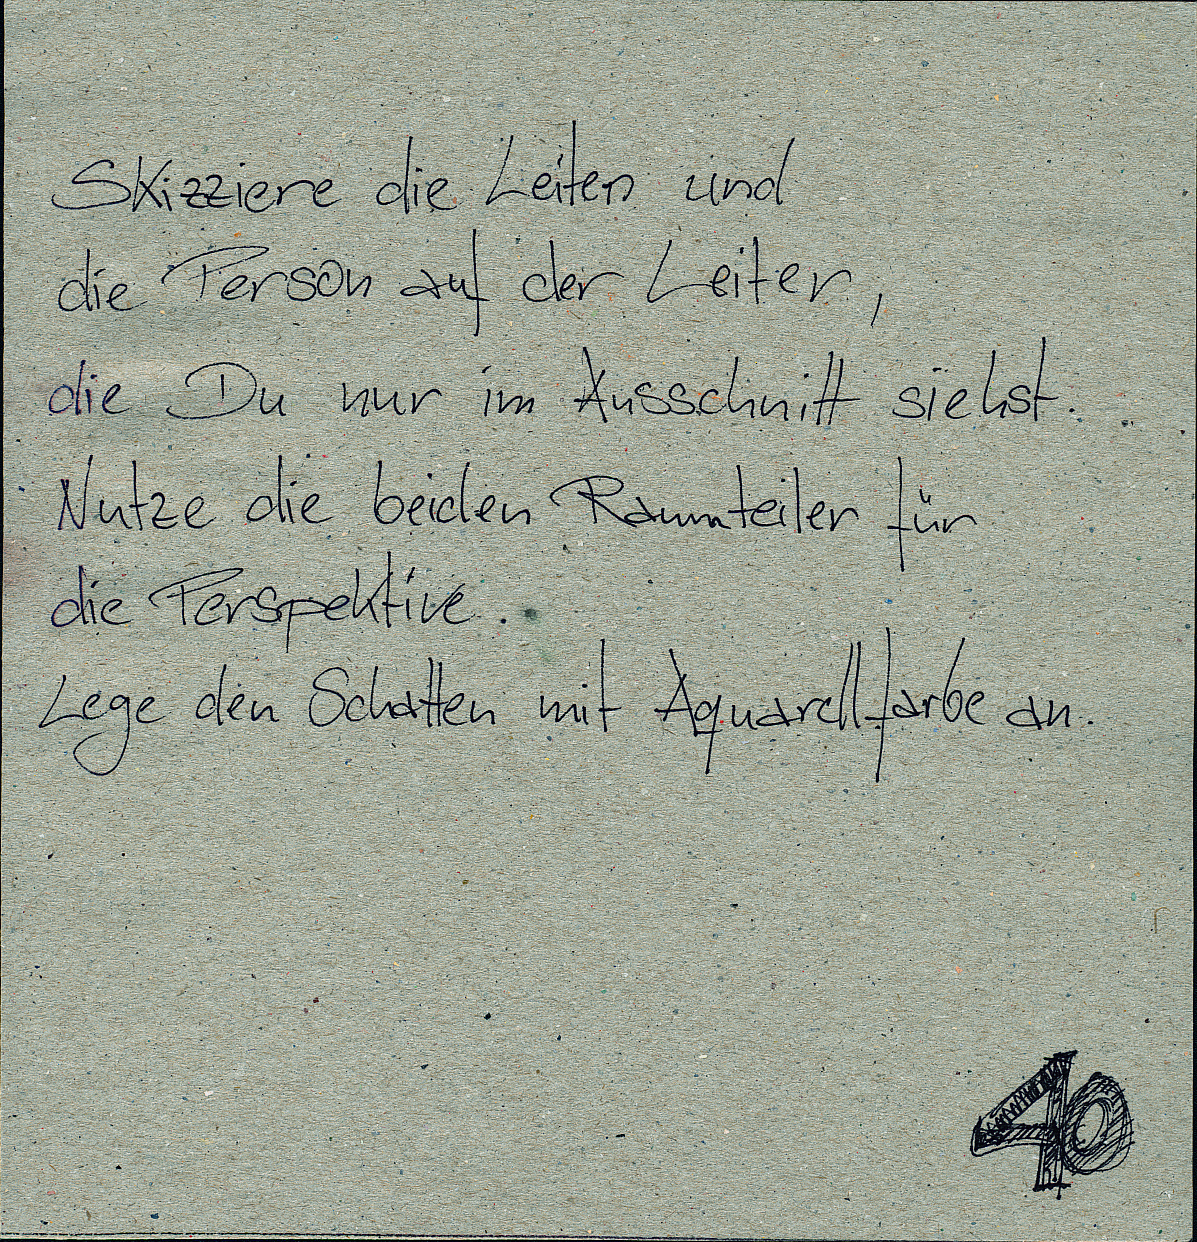 Skizziere die Leiten und
die Person auf der Leiter,
die Du nur im Ausschnitt siehst.
Nutze die beiden Raumteiler für
die Perspektive.
Lege den Schatten mit Aquarellfarbe an.
40